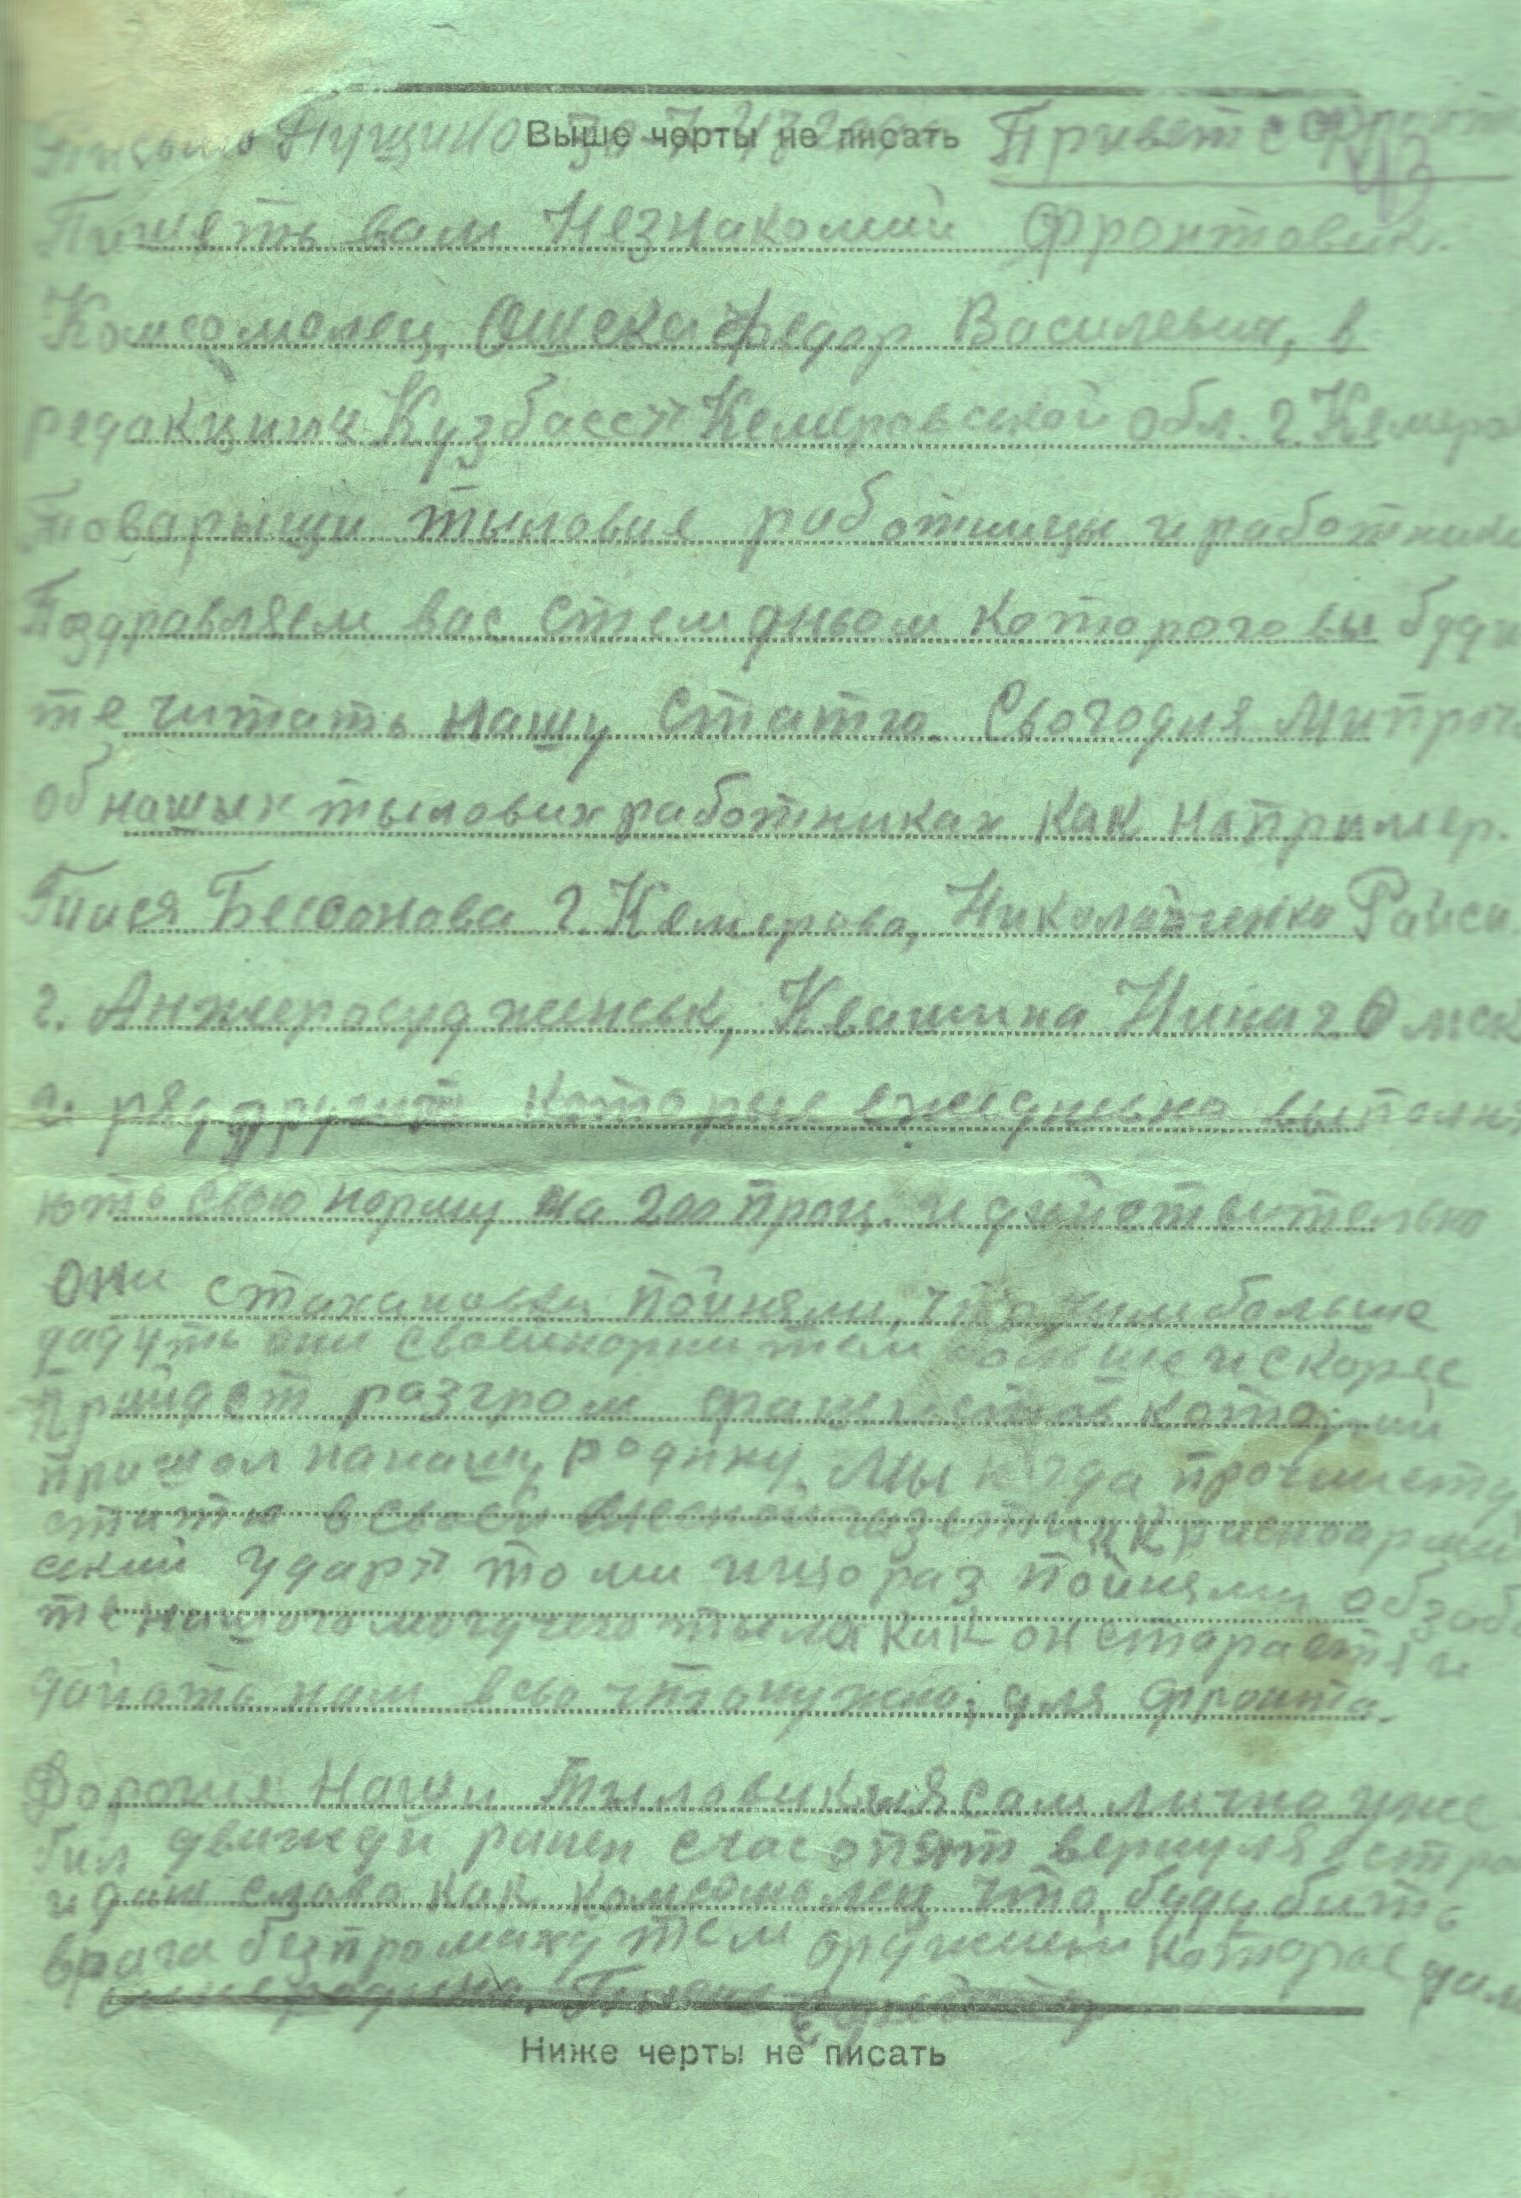 Письмо Пущино Привет с фронта
Выше черты не писать
43
Пишеть вам Незнакомий фронтовик.
Комсомолец, Ошека Федор Василевич, в
редакции Кузбасс" Кемеровской обл. г. Кемеро
Товарыщи тыловие работницы и работники
Поздравляем вас стем дньом которого вы буди
те читать нашу статю. Сьогодня ми проч
об нашых тылових работниках как например.
Тися Бессонова г. Кемерово, Николайченко Раиса
г. Анжеросудженск, Квашина Нина г Омск
и ряд других которые ежедневно выполня
ють свою норму на 200 проц. и дийствительно
Они стахановки пойняли, что чим больше
дадуть они своии норми тем больше и скорее
прийдет разгром фашистов который
пришол на нашу родину. Мы когда прочли ету
статю в своей газети к Красноармий
ский удар" то ми ищо раз пойняли об забо
те нашого могучего тыла как он стараетя и
дайоть нам всьо что нужно, для фронта.
Дорогия Наши Тыловики я сам лично уже
бил дважди ранен счас опять вернуля встро
и даю слово как комсомолец что, буду бить
врага без промаху тем оружием которое дала
мне родина.
Ниже черты не писать